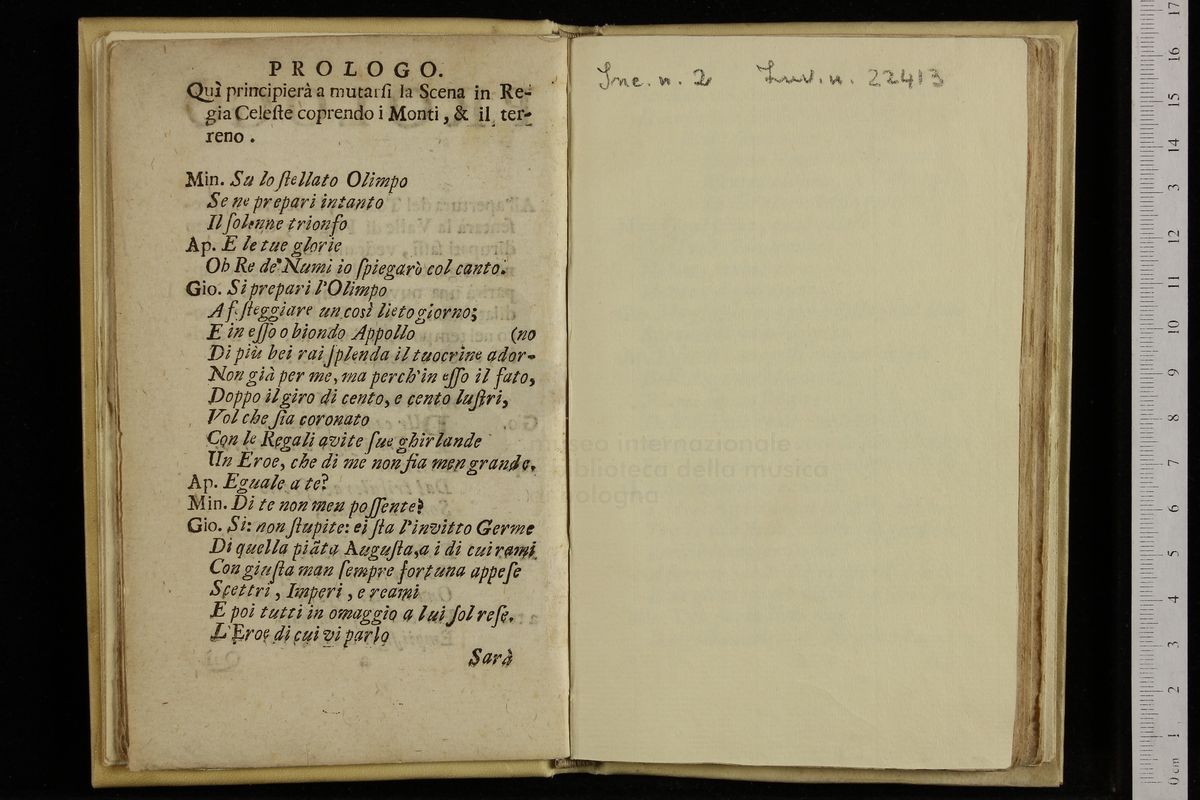 PROLOGO.
Quì principierà a mutarſi la Scena in Re-
gia Celeſte coprendo i Monti, & il ter-
reno.
Min. Su lo ſtellato Olimpo
Se ne prepari intanto
Il ſolenne trionfo
Ap. E le tue glorie
Oh Re de' Numi io ſpiegarò col canto.
Gio. Si prepari l'Olimpo
A feſteggiare un così lieto giorno;
E in eſſo o biondo Appollo (no
Di più bei rai ſplenda il tuo crine ador-
Non già per me, ma perch'in eſſo il fato,
Doppo il giro di cento, e cento luſtri,
Vol che ſia coronato
Con le Regali avite ſue ghirlande
Un Eroe, che di me non ſia men grande.
Ap. Eguale a te?
Min. Di te non men poſſente?
Gio. Si: non ſtupite: ei ſia l'invitto Germe
Di quella piãta Auguſta, a i di cui rami
Con giuſta man ſempre fortuna appeſe
Scettri, Imperi, e reami
E poi tutti in omaggio a lui ſol reſe.
L'Eroe di cui vi parlo
Sarà
Inc. n. 2 Inv. n. 22413
museo internazionale
e biblioteca della musica
di bologna
0 cm 1 2 3 4 5 6 7 8 9 10 11 12 13 14 15 16 17